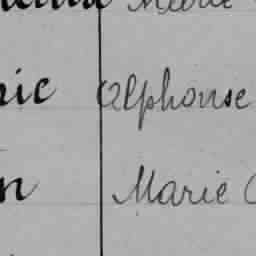 Marie
ric Alphonse
n Marie